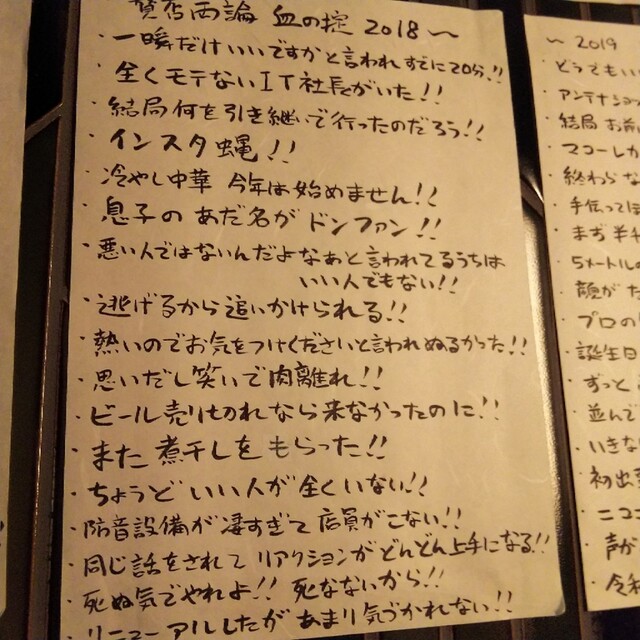 賛否両論 血の掟 2018〜
・一瞬だけいいですかと言われすでに20分!!
・全くモテないIT社長がいた!!
・結局何を引き継いで行ったのだろう!!
・インスタ蝿!!
・冷やし中華 今年は始めません!!
・息子のあだ名がドンファン!!
・悪い人ではないんだよなあと言われてるうちは
いい人でもない!!
・逃げるから追いかけられる!!
・熱いのでお気をつけくださいと言われぬるかった!!
・思いだし笑いで肉離れ!!
・ビール売り切れなら来なかったのに!!
・また煮干しをもらった!!
・ちょうどいい人が全くいない!!
・防音設備が凄すぎて店員がこない!!
・同じ話をされてリアクションがどんどん上手になる!!
・死ぬ気でやれよ!! 死なないから!!
・リニューアルしたがあまり気づかれない!!
〜 2019
・どうでもいい
・アンテナショ
・結局 お前
・マコーレカ
・終わらな
・手伝ってほ
・まず 半
・5メートルの
・顔がた
・プロの
・誕生日
・ずっと
・並んで
・いきな
・初出
・ニコ
・声が
・令和